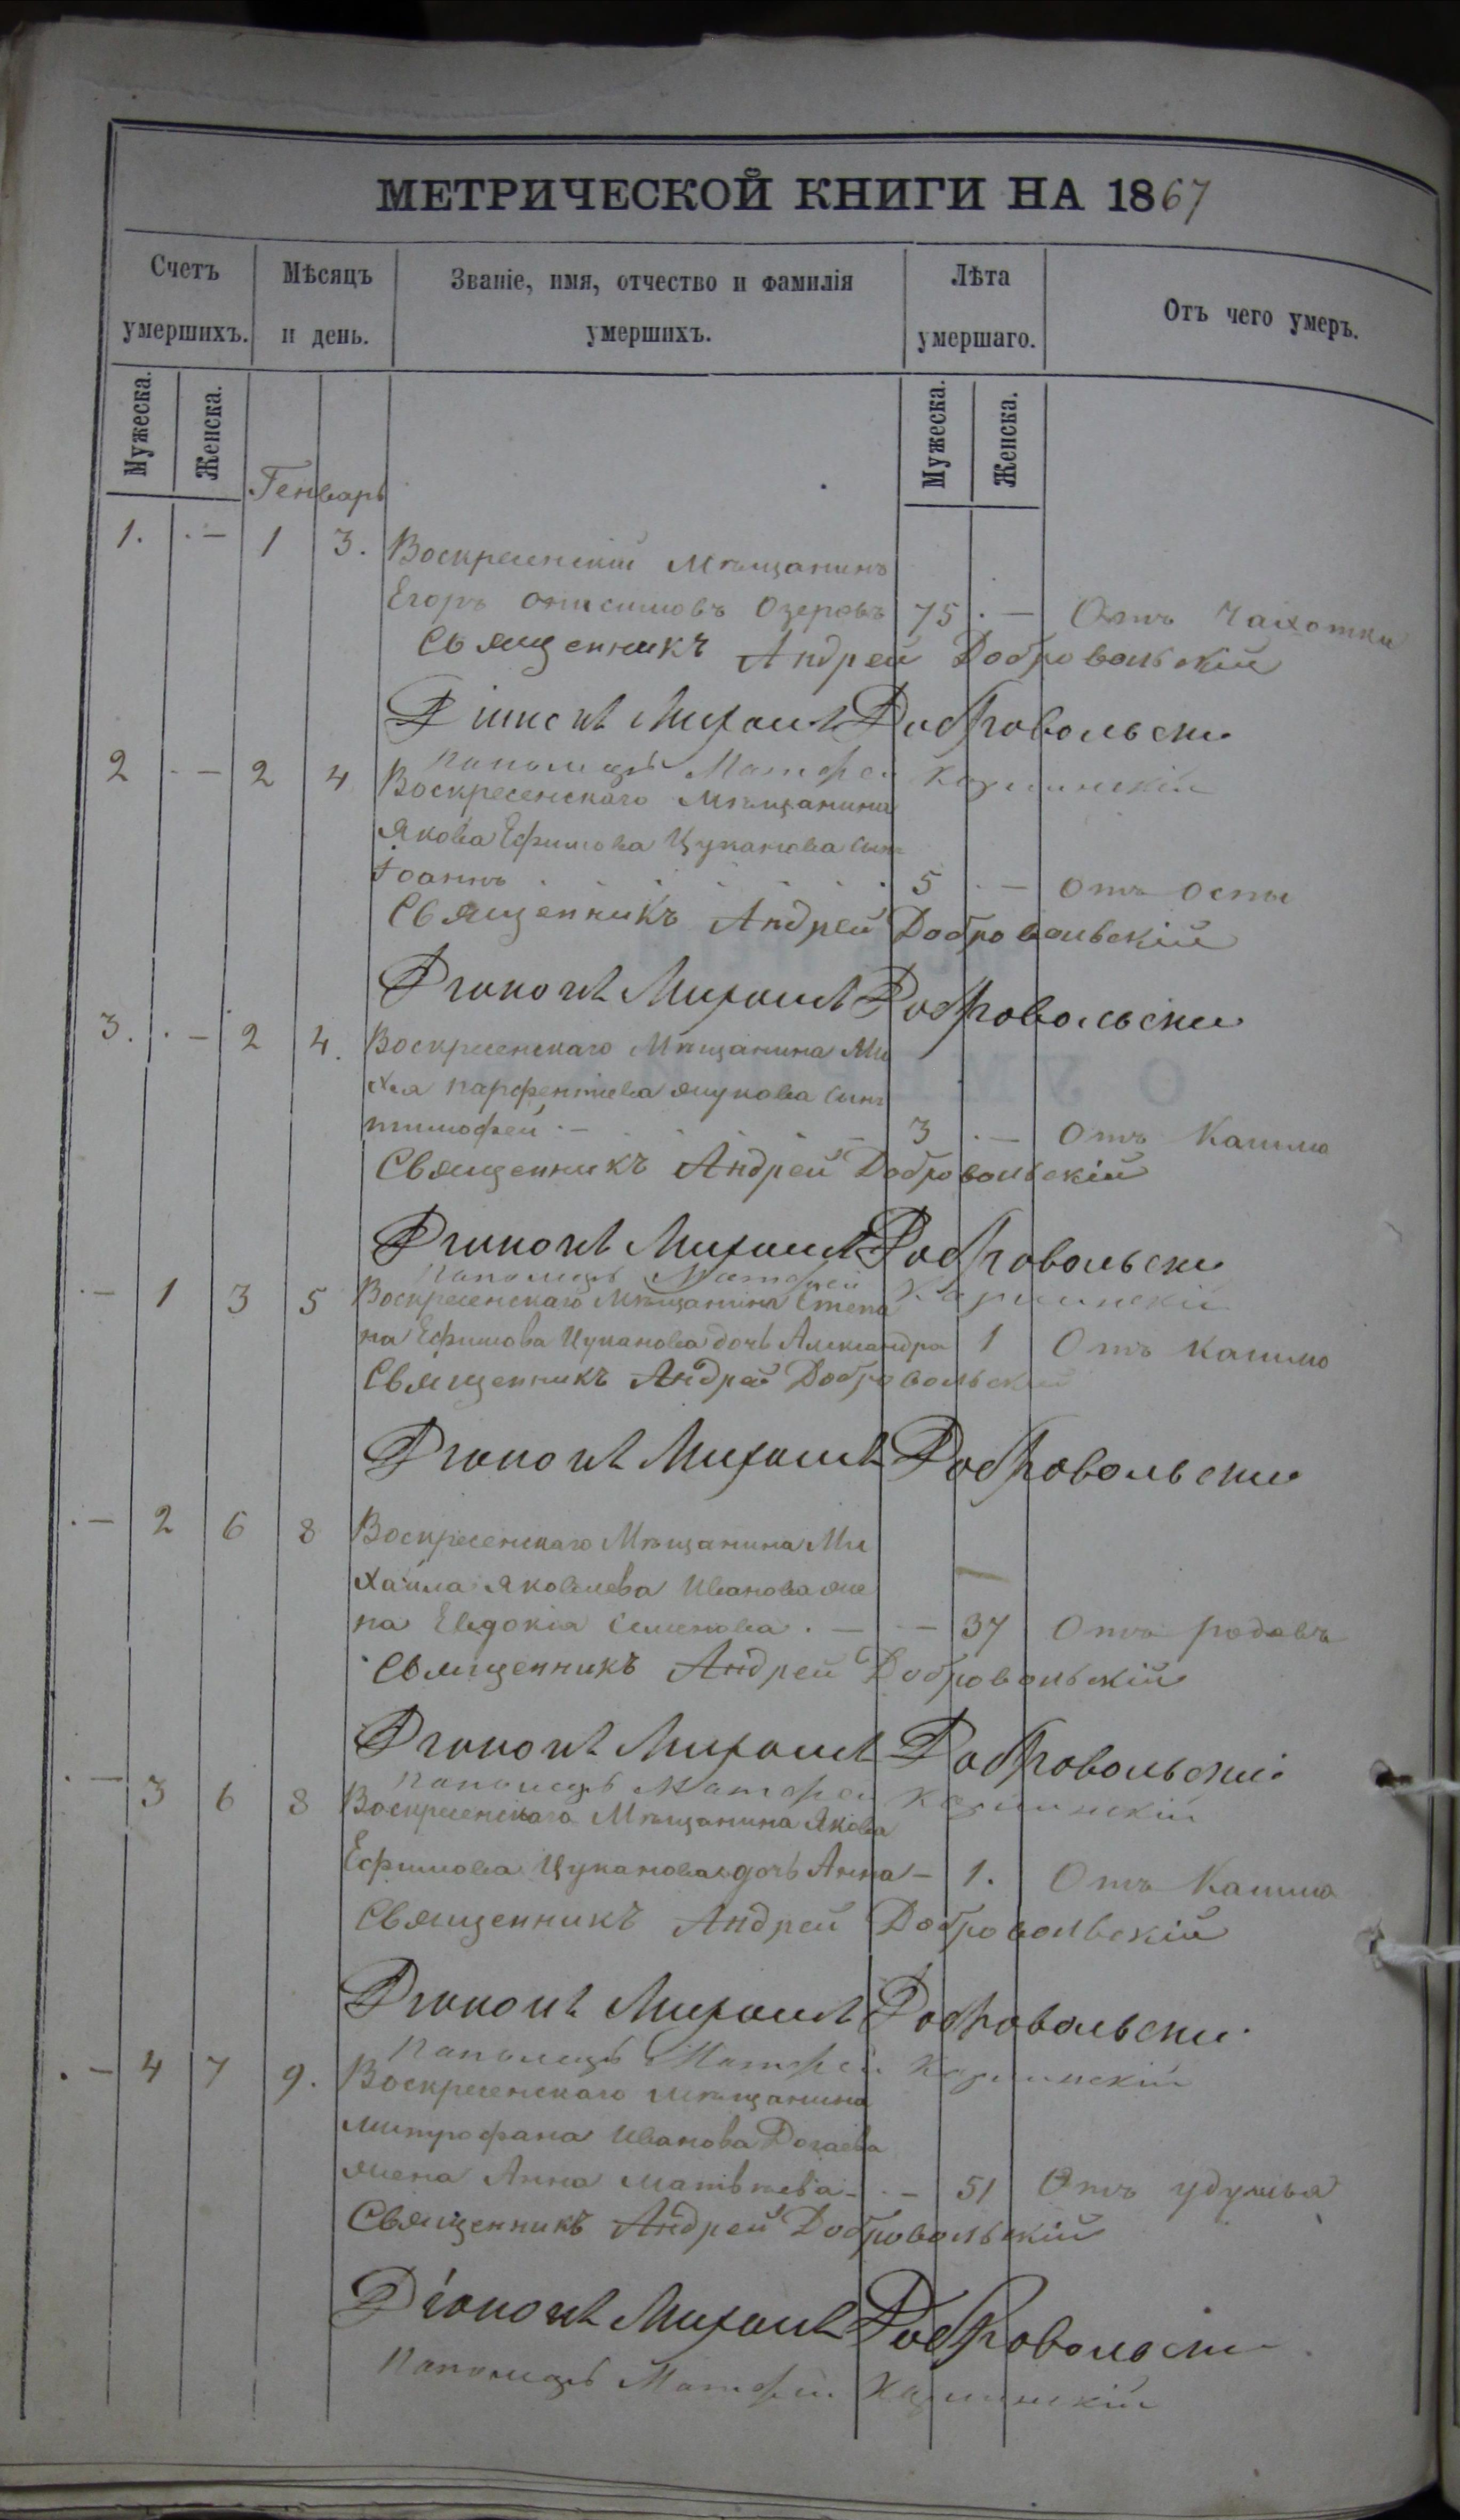 МЕТРИЧЕСКОЙ КНИГИ НА 1867
Счетъ умершихъ. Мѣсяцъ и день. Званіе, имя, отчество и фамилія умершихъ. Лѣта умершаго. Отъ чего умеръ.
Мужеска. Женска. Мужеска. Женска.
Генварь
1. - 1 3. Воскресенскій Мѣщанинъ
Егоръ Онисимовъ Озеровъ 75 - Отъ Чахотки
Священникъ Андрей Добровольскій
Діаконъ Михаилъ Добровольски
Пономарь Матфей
2 - 2 4 Воскресенскаго Мѣщанина
Якова Ефимова Цуканова сынъ
Іоаннъ 5 - Отъ оспы
Священникъ Андрей Добровольскій
Діаконъ Михаилъ Добровольски
3. - 2 4. Воскресенскаго Мѣщанина Ми
хея Парфентиева сынъ
тимофей - 3 - Отъ Кашлю
Священникъ Андрей Добровольскій
Діаконъ Михаилъ Добровольски
Пономарь Матфей
- 1 3 5 Воскресенскаго Мѣщанина Степа
на Ефимова Цуканова дочь Александра 1 Отъ кашлю
Священникъ Андрей Добровольский
Діаконъ Михаилъ Добровольски
- 2 6 8 Воскресенскаго Мѣщанина Ми
хаила Яковлева Иванова же
на Евдокія Семенова - 37 Отъ родовъ
Священникъ Андрей Добровольскій
Діаконъ Михаилъ Добровольскиі
Пономарь Матфей
- 3 6 8 Воскресенскаго Мѣщанина Якова
Ефимова Цуканова дочь Анна - 1. Отъ Кашлю
Священникъ Андрей Добровольскій
Діаконъ Михаилъ Добровольски
Пономарь Матфей
- 4 7 9. Воскресенскаго мѣщанина
митрофана Иванова Догаева
жена Анна матвѣева - 51 Отъ удушья
Священникъ Андрей Добровольскій
Діаконъ Михаилъ Добровольски
Пономарь Матфей